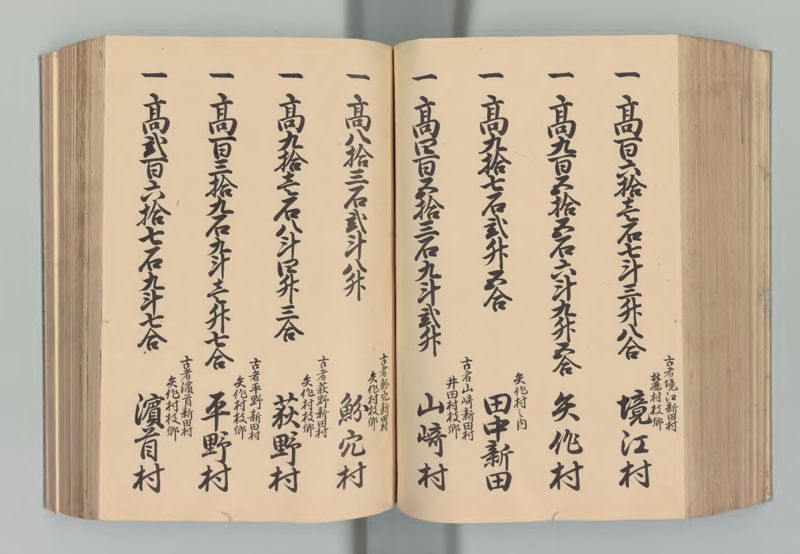 一 高百六拾壱石七斗三升八合
古者境江新田村
村枝郷
境江村
一 高九百五拾五石六斗九升五合
矢作村
一 高九拾七石弐升五合
矢作村之内
田中新田
一 高四百五拾三石九斗弐升
古者山崎新田村
井田村枝郷
山崎村
一 高八拾三石弐斗八升
古者鯯穴新田村
矢作村枝郷
鯯穴村
一 高九拾壱石八斗四升三合
古者萩野新田村
矢作村枝郷
萩野村
一 高百三拾九石九斗壱升七合
古者平野新田村
矢作村枝郷
平野村
一 高弐百六拾七石九斗七合
古者濱首新田村
矢作村枝郷
濱首村